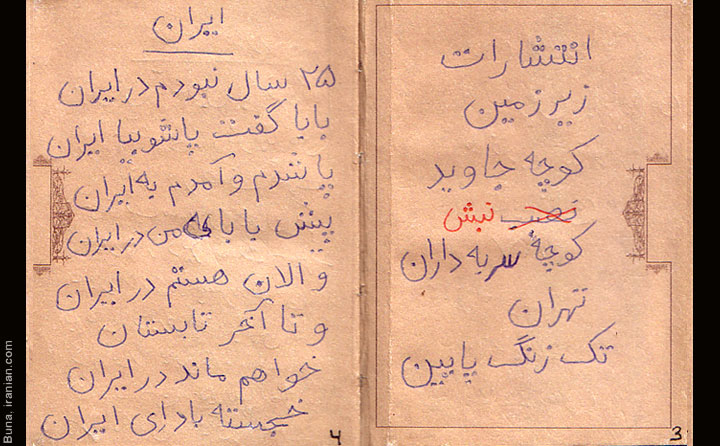 انتشارات
زیرزمین
کوچه جاوید
نبش
کوچهٔ سربه داران
تهران
تک زنگ پایین
3
ایران
۲۵ سال نبودم در ایران
بابا گفت پاشو بیا ایران
پا شدم و آمدم به ایران
پیش بابای من در ایران
و الان هستم در ایران
و تا آخر تابستان
خواهم ماند در ایران
خجسته باد ای ایران
۴
Buna, iranian.com